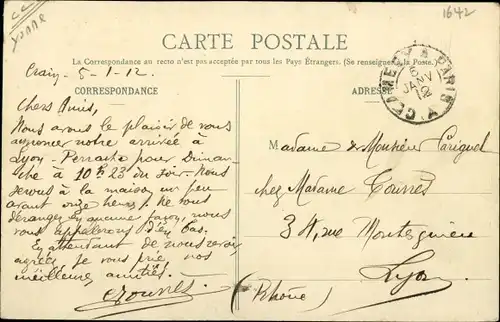 1642
Yonne
CARTE POSTALE
La Correspondance au recto n'est pas acceptée par tous les Pays Étrangers. (Se renseigner à la Poste.)
Crain, 5-1-12.
CORRESPONDANCE
ADRESSE
CLAMECY A PARIS
JANV
12
Chers Amis,
Nous avons le plaisir de vous
annoncer notre arrivée à
Lyon-Perrache pour Diman-
che à 10h23 du soir. Nous
serons à la maison un peu
avant onze heures. Ne vous
dérangez en aucune façon, nous
vous appellerons d'en bas.
En attendant de nous revoir,
agréez, je vous prie, nos
meilleures amitiés.
Madame & Monsieur
chez Madame
3, rue
Lyon
(Rhône)